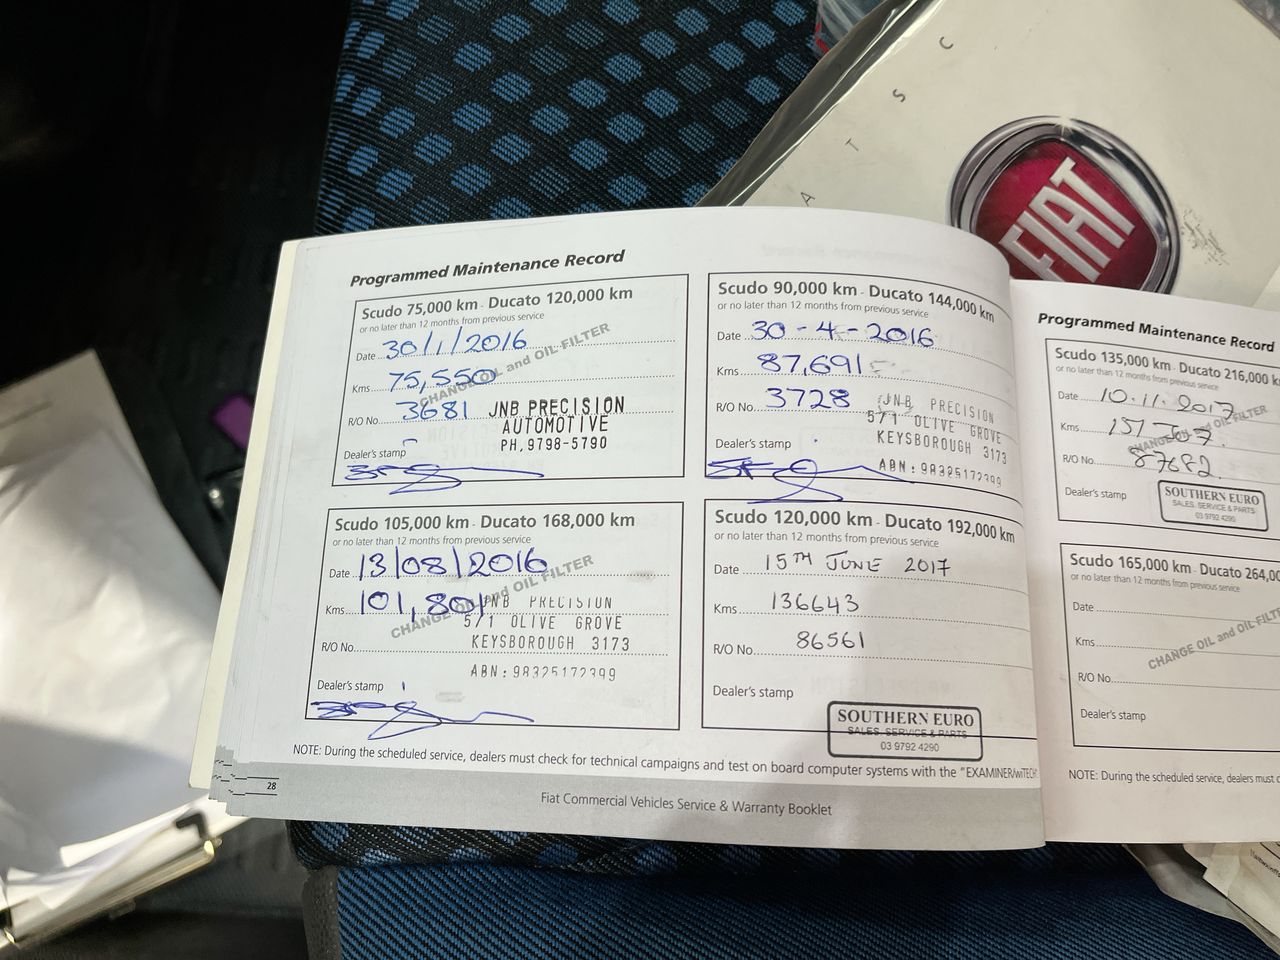 FIAT
A T S C
Programmed Maintenance Record
Scudo 75,000 km - Ducato 120,000 km
or no later than 12 months from previous service
CHANGE OIL and OIL FILTER
Date 30/1/2016
Kms 75,550
R/O No. 3681
JNB PRECISION
AUTOMOTIVE
PH, 9798-5790
Dealer's stamp
Scudo 90,000 km - Ducato 144,000 km
or no later than 12 months from previous service
Date 30-4-2016
Kms 87,691
R/O No. 3728
JNB PRECISION
5/1 OLIVE GROVE
KEYSBOROUGH 3173
ABN: 98325172399
Dealer's stamp
Scudo 105,000 km - Ducato 168,000 km
or no later than 12 months from previous service
CHANGE OIL and OIL FILTER
Date 13/08/2016
Kms 101,801
JNB PRECISION
5/1 OLIVE GROVE
R/O No.
KEYSBOROUGH 3173
ABN: 98325172399
Dealer's stamp
Scudo 120,000 km - Ducato 192,000 km
or no later than 12 months from previous service
Date 15TH JUNE 2017
Kms 136643
R/O No. 86561
Dealer's stamp
SOUTHERN EURO
SALES, SERVICE & PARTS
03 9792 4290
NOTE: During the scheduled service, dealers must check for technical campaigns and test on board computer systems with the "EXAMINER/wiTECH
28
Fiat Commercial Vehicles Service & Warranty Booklet
Programmed Maintenance Record
Scudo 135,000 km - Ducato 216,000 k
or no later than 12 months from previous service
CHANGE OIL and OIL FILTER
Date 10.11.2017
Kms
R/O No. 87682
Dealer's stamp
SOUTHERN EURO
SALES, SERVICE & PARTS
03 9792 4290
Scudo 165,000 km - Ducato 264,00
or no later than 12 months from previous service
CHANGE OIL and OIL FILT
Date
Kms
R/O No.
Dealer's stamp
NOTE: During the scheduled service, dealers must